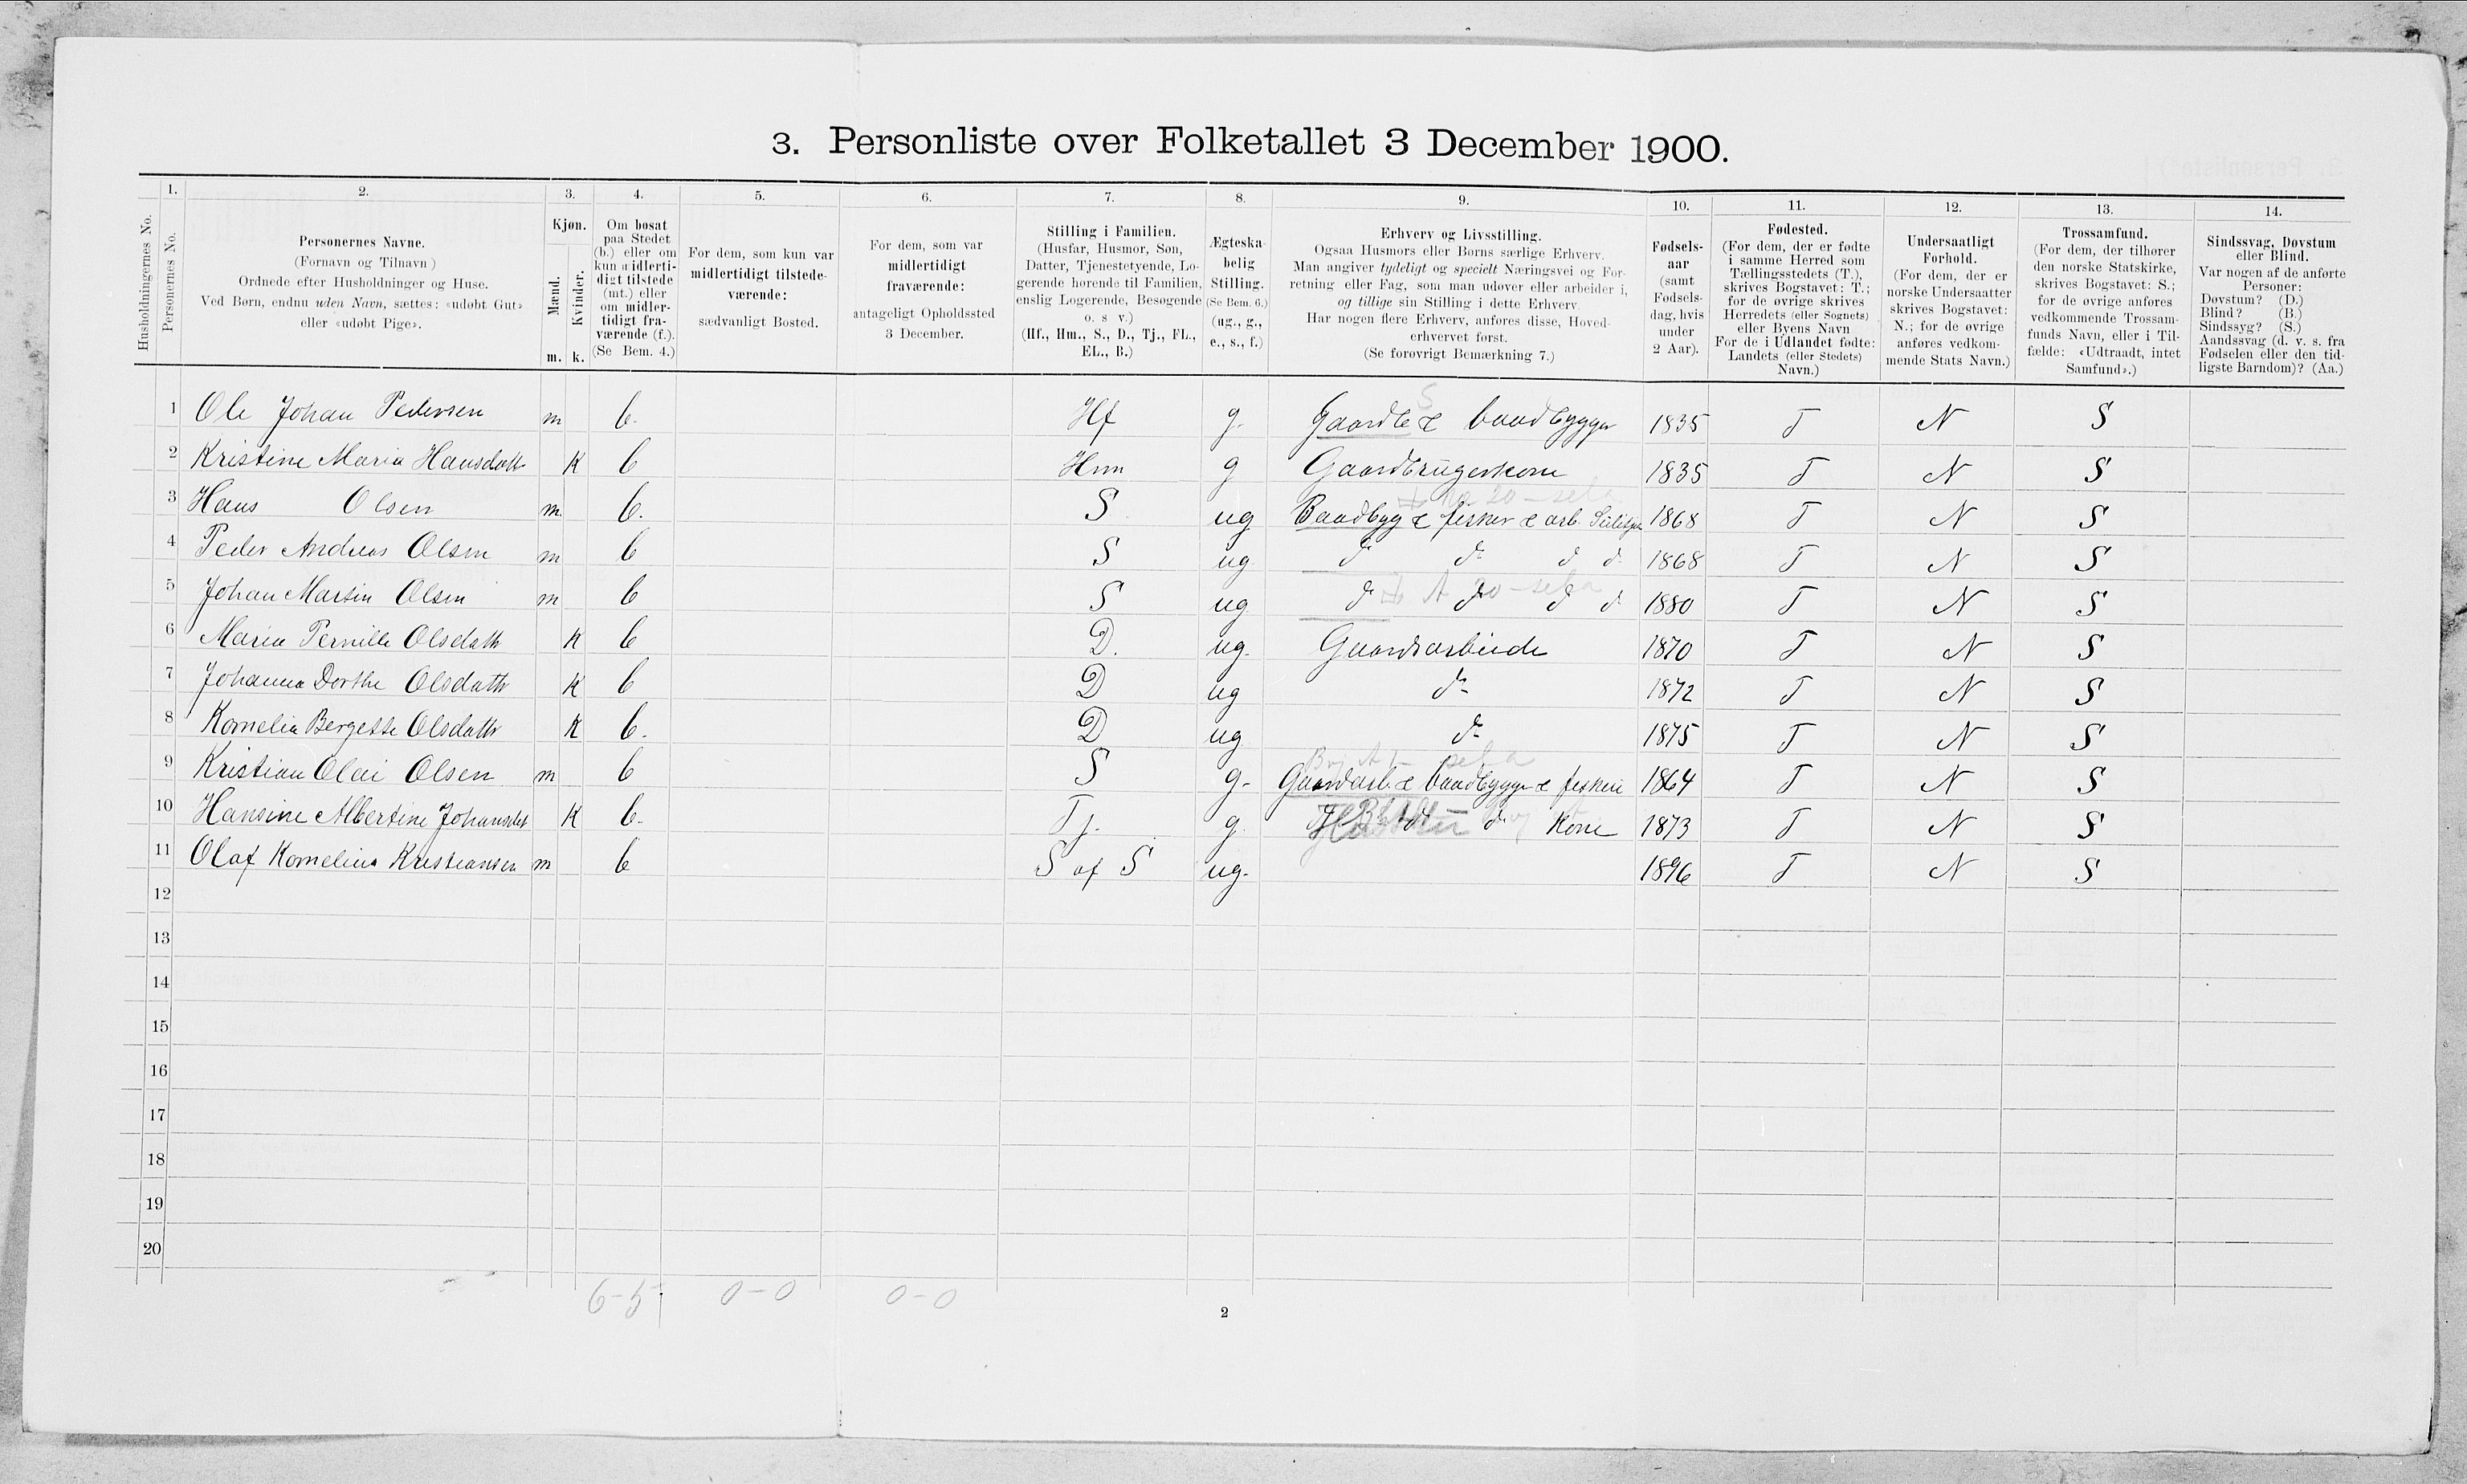 3. Personliste over Folketallet 3 December 1900.
1. 2. 3. 4. 5. 6. 7. 8. 9. 10. 11. 12. 13. 14.
Husholdningernes No.
Personernes No.
Personernes Navne.
(Fornavn og Tilnavn)
Ordnede efter Husholdninger og Huse.
Ved Børn, endnu uden Navn, sættes: «udøbt Gut»
eller «udøbt Pige».
Kjøn.
Mænd.
Kvinder.
m. k.
Om bosat
paa Stedet
(b.) eller om
kun midlerti-
digt tilstede
(mt.) eller
om midler-
tidigt fra-
værende (f.).
(Se Bem. 4.)
For dem, som kun var
midlertidigt tilstede-
værende:
sædvanligt Bosted.
For dem, som var
midlertidigt
fraværende:
antageligt Opholdssted
3 December.
Stilling i Familien.
(Husfar, Husmor, Søn,
Datter, Tjenestetyende, Lo-
gerende hørende til Familien,
enslig Logerende, Besøgende
o. s v.)
(Hf., Hm., S., D., Tj., FL.,
EL., B.)
Ægteska-
belig
Stilling.
(Se Bem. 6.)
(ug., g.,
e., s., f.)
Erhverv og Livsstilling.
Ogsaa Husmors eller Børns særlige Erhverv.
Man angiver tydeligt og specielt Næringsvei og For-
retning eller Fag, som man udøver eller arbeider i,
og tillige sin Stilling i dette Erhverv.
Har nogen flere Erhverv, anføres disse, Hoved-
erhvervet først.
(Se forøvrigt Bemærkning 7.)
Fødsels-
aar
(samt
Fødsels-
dag, hvis
under
2 Aar).
Fødested.
(For dem, der er fødte
i samme Herred som
Tællingsstedets (T.),
skrives Bogstavet: T.;
for de øvrige skrives
Herredets (eller Sognets)
eller Byens Navn
For de i Udlandet fødte:
Landets (eller Stedets)
Navn.)
Undersaatligt
Forhold.
(For dem, der er
norske Undersaatter
skrives Bogstavet:
N.; for de øvrige
anføres vedkom-
mende Stats Navn.)
Trossamfund.
(For dem, der tilhører
den norske Statskirke,
skrives Bogstavet: S.;
for de øvrige anføres
vedkommende Trossam-
funds Navn, eller i Til-
fælde: «Udtraadt, intet
Samfund».)
Sindssvag, Døvstum
eller Blind.
Var nogen af de anførte
Personer:
Døvstum? (D.)
Blind? (B.)
Sindssyg? (S.)
Aandssvag (d. v. s. fra
Fødselen eller den tid-
ligste Barndom)? (Aa.)
S
1 Ole Johan Pedersen m b. Hf g. Gaardb & baadbygger 1835 T N S
2 Kristine Maria Hansdatt K b Hm g Gaardbrugerkone 1835 T N S
20 - selv
3 Hans Olsen m. b. S ug Baadbyg & fisker & arb. 1868 T N S
4 Peder Andreas Olsen m b S ug do do d d 1868 T N S
A 20 - selv
5 Johan Martin Olsen m b S ug. do do d d 1880 T N S
6 Maria Pernille Olsdatt K b D. ug. Gaardsarbeide 1870 T N S
7 Johanna Dorthe Olsdatt K b D ug do 1872 T N S
8 Kornelia Bergette Olsdatt K b. D ug do 1875 T N S
9 Kristian Olai Olsen m b S g. Gaardarb & baadbygger & fiskeri 1864 T N S
10 Hansine Albertine Johansdat K b. Tj. g. d kone 1873 T N S
11 Olaf Kornelius Kristiansen m b S af S ug. 1896 T N S
12
13
14
15
16
17
18
19
20
6-5 0-0 0-0
2